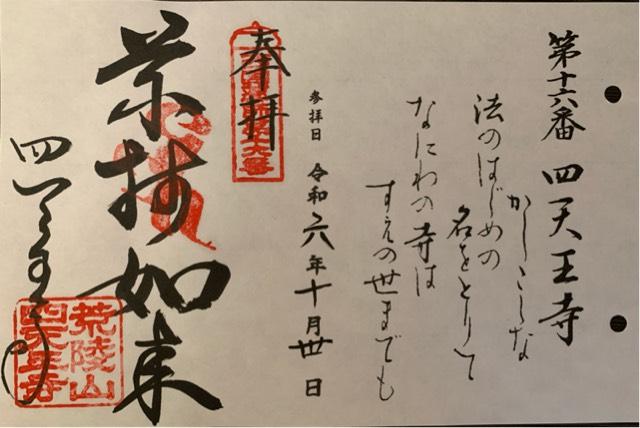 第十六番 四天王寺
かしこしな
法のはじめの
名をとりて
なにわの寺は
すえの世までも
参拝日 令和六年十月卅日
奉拝
薬師如来
四天王寺
荒陵山
四天王寺